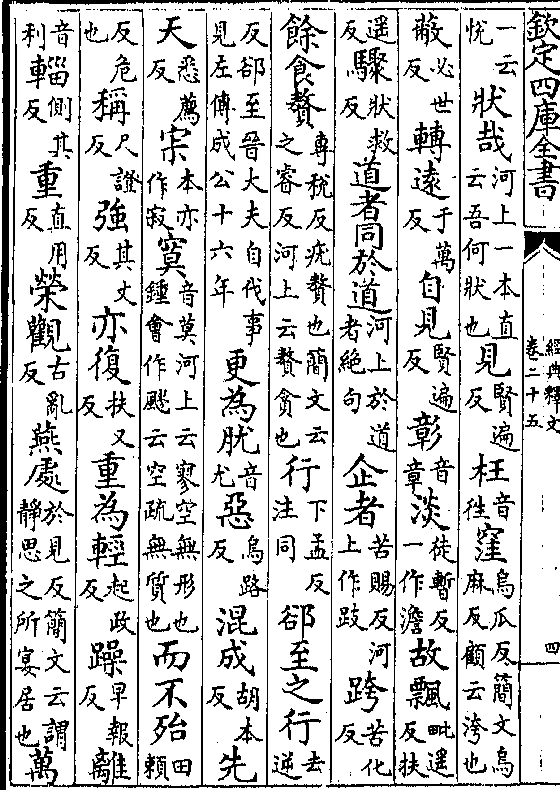 欽定四庫全書
經典釋文
卷二十五
四
一云悅狀哉河上一本直云吾何狀也見賢遍反枉音徃窪烏瓜反簡文烏麻反顧云洿也
敝必世反轉遠于萬反自見賢遍反彰音章淡徒暫反一作澹故飄毗遥反扶
遥反驟狀救反道者同於道河上於道者絶句企者苦賜反河上作跂跨苦化反
餘食贅專稅反疣贅也簡文云之睿反河上云贅貪也行下孟反注同郤至之行去逆
反郤至晉大夫自代事見左傳成公十六年更為肬音尤惡烏路反混成胡本反先
天悉薦反宗本亦作寂寞音莫河上云寥空無形也鍾會作飂云空疏無質也而不殆田賴
反危也稱尺證反強其丈反亦復扶又反重為輕起政反躁早報反離
音利輜側其反重直用反榮觀古亂反燕處於見反簡文云謂靜思之所宴居也萬